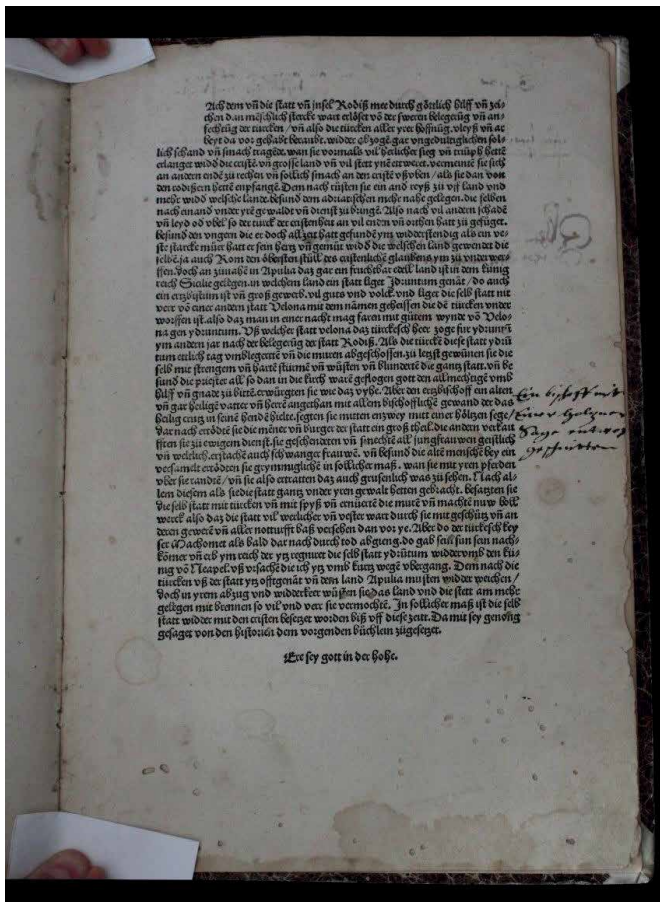 Ach dem vñ die statt vñ jnsel Rodiß mee durch götlich hilff vñ zei-
chen dan mẽschlich stercke wart erlöset võ der sweren belegerũg vñ an-
fechtũg der türcken / vñ also die türcken aller yrer hoffnũg, vleyß vñ ar
beyt da vor gehabt beraubt. widder abzogẽ gar vngedultiglichen sol-
lich schand vñ smach tragẽde. wan sie vormals vil herlicher sieg vñ triũph hettẽ
erlanget widd die cristẽ vñ grosse land vñ vil stett ynẽ entweret. vermeintẽ sie sich
an andern endẽ zů rechen vñ sollich smach an den cristẽ vßvben / als sie dan von
den rodißern hettẽ enpfangẽ. Dem nach rüsten sie ein and reyß zů vff land vnd
mehr widd welsche lande. besund dem adriatischen mehr nahe gelegen. die selben
nach einand vnder yrẽ gewaldt vñ dienst zů bringẽ. Also nach vil andern schadẽ
vñ leyd od vbel so der türck der cristenheit an vil enden vñ orthen hatt zů gefüget.
besund den vngern die er doch all zeit hatt gefundẽ ym widderstendig als ein ve-
ste starcke müer hatt er sein hertz vñ gemüt widd die welschen land gewendet die
selbẽ. ja auch Rom den öbersten stüll des cristenlichẽ glaubens ym zů vnderwer-
ffen. doch an zůuahẽ in Apulia daz gar ein fruchtbar edell land ist in dem künig
reich Sicilie gelegen. in welchem land ein statt liget Jdruntum genãt / do auch
ein ertzbistum ist vñ groß gewerb. vil guts vnd volck. vnd liget die selb statt nit
verr võ einer andern statt Velona mit dem nãmen geheissen die dẽ türcken vnder
worffen ist. also daz man in einer nacht mag faren mit gůtem wynde võ Velo-
na gen ydruntum. Vß welcher statt velona daz türckesch heer zoge fur ydruntũ
ym andern jar nach der belegerũg der statt Rodiß. Als die türckẽ diese statt ydrũ
tum ettlich tag vmblegertẽ vñ die muren abgeschossen. zů letzst gewũnen sie die
selb mit strengem vñ hartẽ stürme vñ wüsten vñ blundertẽ die gantz statt. vñ be
sund die priester all so dan in die kirch warẽ geflogen gott den allmechtigẽ vmb
hilff vñ gnade zů bittẽ. erwürgten sie wie daz vyhe. Aber den ertzbischoff ein alten
vñ gar heiligẽ vatter vñ herrẽ angethan mit allem bischofflichẽ gewand der das
heilig crutz in seinẽ hendẽ hielte. segten sie mitten enzwey mitt einer höltzen sege /
dar nach ertödtẽ sie die mẽner vñ burger der statt ein groß theil. die andern verkau
fften sie zů ewigem dienst. sie geschendeten vñ smechtẽ all jungfrauwen geistlich
vñ weltlich. erstachẽ auch schwanger frauwẽ. vñ besund die altẽ menschẽ bey ein
versamelt ertödten sie grymmiglichẽ in sollicher maß. wan sie mit yren pferden
vber sie randtẽ / vñ sie also ertratten daz auch grusenlich was zů sehen. Nach al-
lem diesem als sie die statt gantz vnder yren gewalt hetten gebracht. besatzten sie
die selb statt mit türcken vñ mit spyß vñ ernüertẽ die murẽ vñ machtẽ nuw boll
werck also daz die statt vil werlicher vñ vester wart durch sie mit geschütz vñ an
deren gewerẽ vñ aller notturfft baß versehen dan vor ye. Aber do der türckesch key
ser Machomet als bald dar nach durch tod abgieng. do gab sein sun sein nach-
kõmer vñ erb ym reich der ytz regnieret die selb statt ydrũtum widder vmb den kü-
nig võ Neapel. vß vrsachẽ die ich ytz vmb kurtz wegẽ vbergang. Dem nach die
türcken vß der statt ytz offtgenãt vñ dem land Apulia musten widder weichen /
doch in yrem abzug vnd widderkeer wůsten sie das land vnd die stett am mehr
gelegen mit brennen so vil vnd verr sie vermochtẽ. Jn sollicher maß ist die selb
statt widder mit den cristen besetzet worden biß vff diese zeitt. Da mit sey genoũg
gesaget von den historien dem vorgenden büchlein zůgesetzet.
Ere sey gott in der hohe.
Ein bischoff mit
Einer holzenen
Sage entzwey
geschnitten